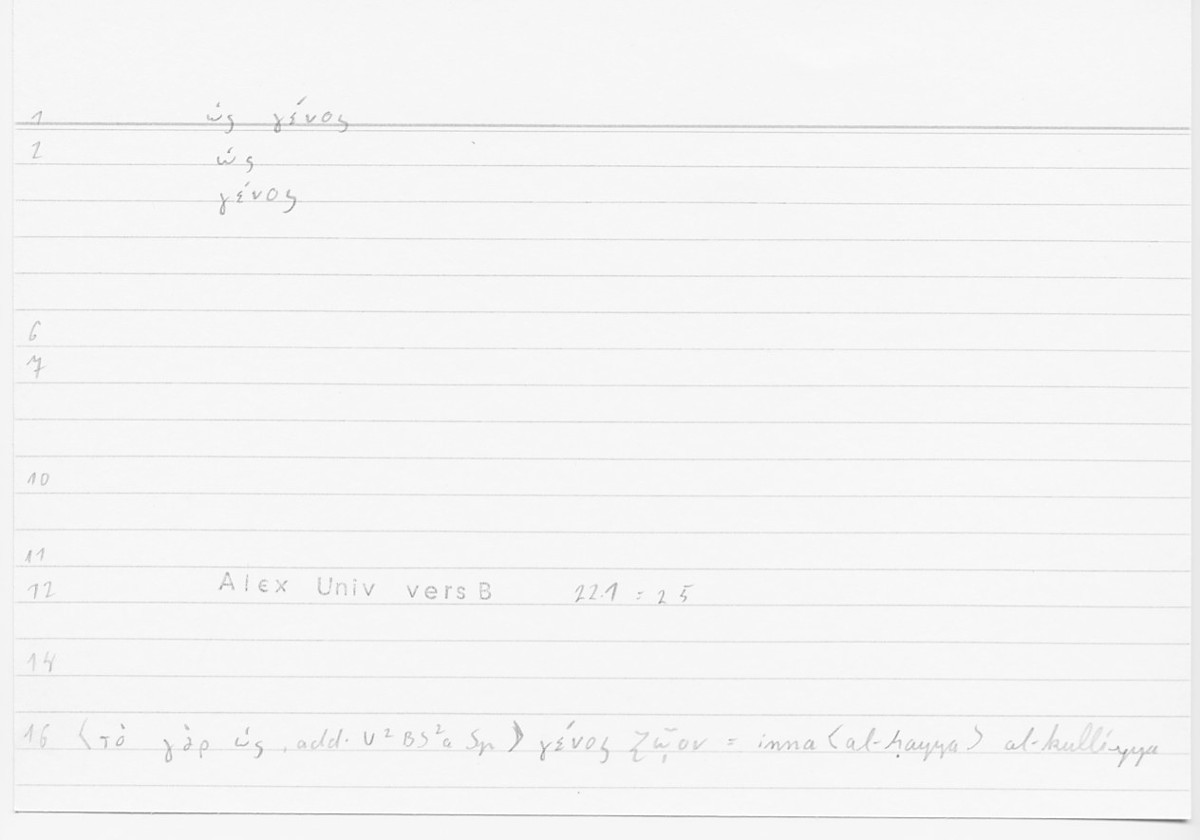 1 ὡς γένος
2 ὡς
γένος
6
7
10
11
12 Alex Univ vers B 22.1 = 25
14
16 〈τὸ γὰρ ὡς, add. V² BS²a Sp〉 γένος ζῷον = inna 〈al-ḥayya〉 al-kulliyya